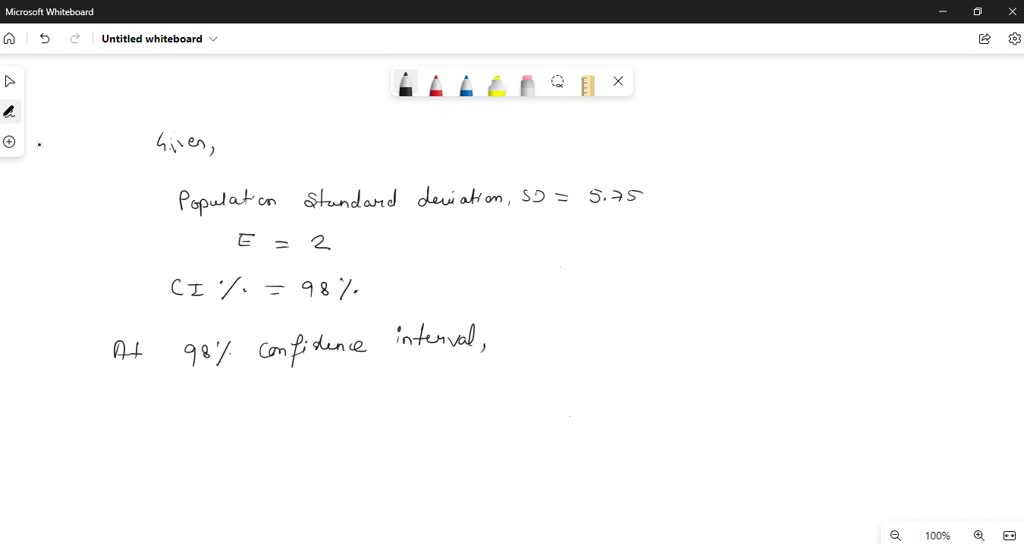 Microsoft Whiteboard
Untitled whiteboard
Given,
Population Standard deviation, SD = 5.75
E = 2
CI % = 98%.
At 98% confidence interval,
100%